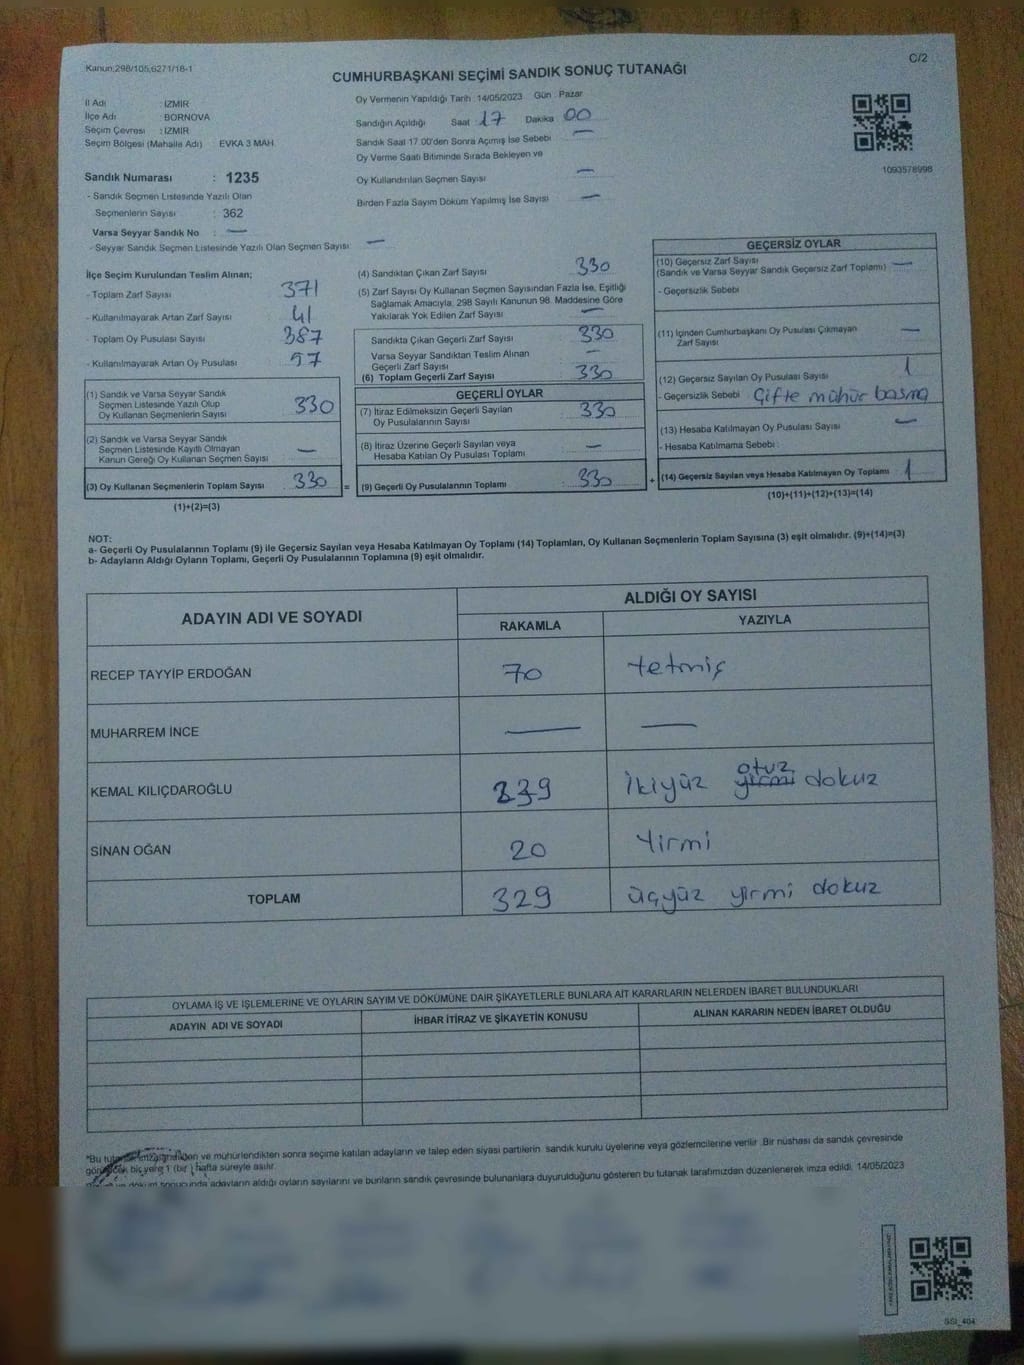 Kanun;298/105,6271/18-1
C/2
CUMHURBAŞKANI SEÇİMİ SANDIK SONUÇ TUTANAĞI
İl Adı : İZMİR
İlçe Adı : BORNOVA
Seçim Çevresi : İZMİR
Seçim Bölgesi (Mahalle Adı) : EVKA 3 MAH.
Oy Vermenin Yapıldığı Tarih : 14/05/2023 Gün : Pazar
Sandığın Açıldığı Saat 17 Dakika 00
Sandık Saat 17.00'den Sonra Açımış İse Sebebi —
Oy Verme Saati Bitiminde Sırada Bekleyen ve
Oy Kullandırılan Seçmen Sayısı —
Birden Fazla Sayım Döküm Yapılmış İse Sayısı —
1093578998
Sandık Numarası : 1235
- Sandık Seçmen Listesinde Yazılı Olan
Seçmenlerin Sayısı : 362
Varsa Seyyar Sandık No : —
- Seyyar Sandık Seçmen Listesinde Yazılı Olan Seçmen Sayısı: —
İlçe Seçim Kurulundan Teslim Alınan;
- Toplam Zarf Sayısı : 371
- Kullanılmayarak Artan Zarf Sayısı : 41
- Toplam Oy Pusulası Sayısı : 387
- Kullanılmayarak Artan Oy Pusulası : 57
(1) Sandık ve Varsa Seyyar Sandık
Seçmen Listesinde Yazılı Olup
Oy Kullanan Seçmenlerin Sayısı : 330
(2) Sandık ve Varsa Seyyar Sandık
Seçmen Listesinde Kayıtlı Olmayan
Kanun Gereği Oy Kullanan Seçmen Sayısı : —
(3) Oy Kullanan Seçmenlerin Toplam Sayısı : 330 =
(1)+(2)=(3)
(4) Sandıktan Çıkan Zarf Sayısı 330
(5) Zarf Sayısı Oy Kullanan Seçmen Sayısından Fazla İse, Eşitliği
Sağlamak Amacıyla, 298 Sayılı Kanunun 98. Maddesine Göre
Yakılarak Yok Edilen Zarf Sayısı : —
Sandıkta Çıkan Geçerli Zarf Sayısı : 330
Varsa Seyyar Sandıktan Teslim Alınan
Geçerli Zarf Sayısı : —
(6) Toplam Geçerli Zarf Sayısı : 330
GEÇERLİ OYLAR
(7) İtiraz Edilmeksizin Geçerli Sayılan
Oy Pusulalarının Sayısı : 330
(8) İtiraz Üzerine Geçerli Sayılan veya
Hesaba Katılan Oy Pusulası Toplamı : —
(9) Geçerli Oy Pusulalarının Toplamı : 330 +
GEÇERSİZ OYLAR
(10) Geçersiz Zarf Sayısı
(Sandık ve Varsa Seyyar Sandık Geçersiz Zarf Toplamı) : —
- Geçersizlik Sebebi :
(11) İçinden Cumhurbaşkanı Oy Pusulası Çıkmayan
Zarf Sayısı : —
(12) Geçersiz Sayılan Oy Pusulası Sayısı : 1
- Geçersizlik Sebebi : Çifte mühür basma
(13) Hesaba Katılmayan Oy Pusulası Sayısı : —
- Hesaba Katılmama Sebebi :
(14) Geçersiz Sayılan veya Hesaba Katılmayan Oy Toplamı : 1
(10)+(11)+(12)+(13)=(14)
NOT:
a- Geçerli Oy Pusulalarının Toplamı (9) ile Geçersiz Sayılan veya Hesaba Katılmayan Oy Toplamı (14) Toplamları, Oy Kullanan Seçmenlerin Toplam Sayısına (3) eşit olmalıdır. (9)+(14)=(3)
b- Adayların Aldığı Oyların Toplamı, Geçerli Oy Pusulalarının Toplamına (9) eşit olmalıdır.
ADAYIN ADI VE SOYADI
ALDIĞI OY SAYISI
RAKAMLA YAZIYLA
RECEP TAYYİP ERDOĞAN 70 Yetmiş
MUHARREM İNCE — —
KEMAL KILIÇDAROĞLU 239 İkiyüz otuz dokuz
SİNAN OĞAN 20 Yirmi
TOPLAM 329 üçyüz yirmi dokuz
OYLAMA İŞ VE İŞLEMLERİNE VE OYLARIN SAYIM VE DÖKÜMÜNE DAİR ŞİKAYETLERLE BUNLARA AİT KARARLARIN NELERDEN İBARET BULUNDUKLARI
ADAYIN ADI VE SOYADI İHBAR İTİRAZ VE ŞİKAYETİN KONUSU ALINAN KARARIN NEDEN İBARET OLDUĞU
*Bu tutanak imzalandıktan ve mühürlendikten sonra seçime katılan adayların ve talep eden siyasi partilerin, sandık kurulu üyelerine veya gözlemcilerine verilir. Bir nüshası da sandık çevresinde
görülecek bir yere 1 (bir ) hafta süreyle asılır.
döküm sonucunda adayların aldığı oyların sayılarını ve bunların sandık çevresinde bulunanlara duyurulduğunu gösteren bu tutanak tarafımızdan düzenlenerek imza edildi. 14/05/2023
SSI_404